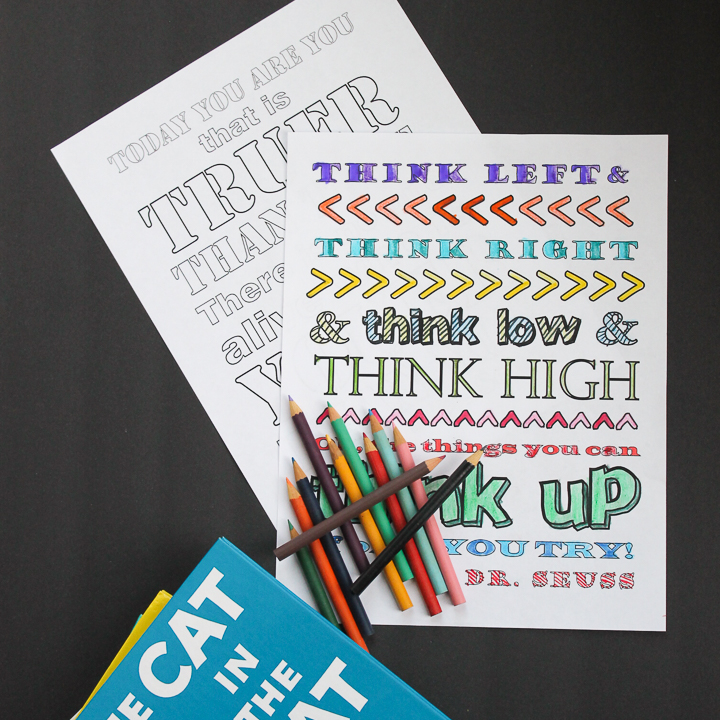 TODAY YOU ARE YOU
that is
TRUER
THAN
There
aliv
THINK LEFT &
THINK RIGHT
& think low &
THINK HIGH
things you can
nk up
YOU TRY!
DR. SEUSS
HE CAT
IN
THE
AT